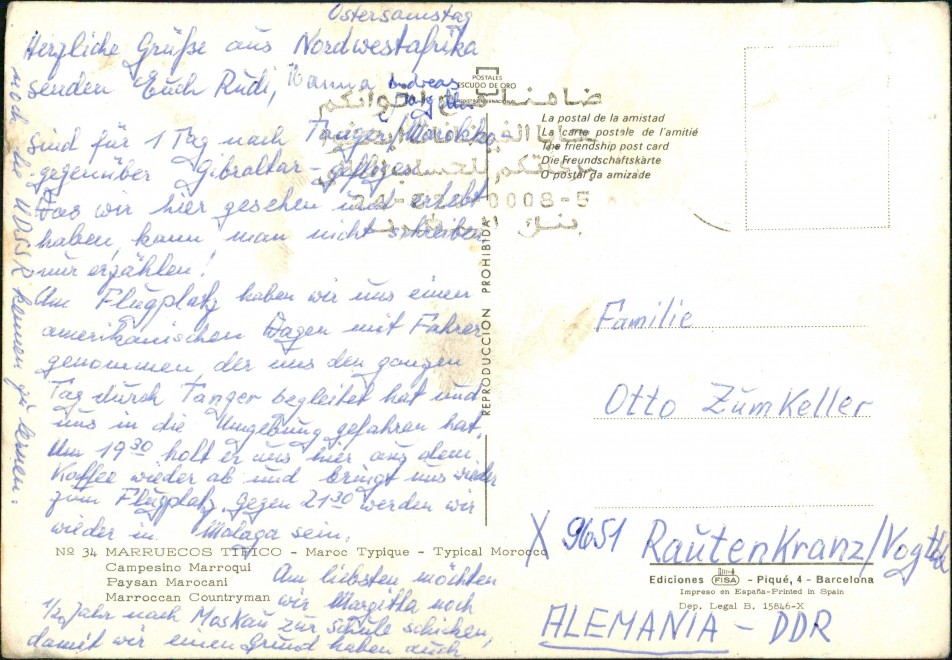 Ostersamstag
Herzliche Grüße aus Nordwestafrika
senden Euch Rudi, Hanna
Andreas
sind für 1 Tag nach Tanger/Marokko
gegenüber Gibraltar - geflogen.
Was wir hier gesehen und erlebt
haben, kann man nicht schreiben,
nur erzählen!
Am Flugplatz haben wir uns einen
amerikanischen Wagen mit Fahrer
genommen, der uns den ganzen
Tag durch Tanger begleitet hat und
uns in die Umgebung gefahren hat.
Um 19³⁰ holt er uns hier aus dem
Kaffee wieder ab und bringt uns wieder
zum Flugplatz. Gegen 21³⁰ werden wir
wieder in Malaga sein.
Am liebsten möchten
wir Margitta noch
1/2 Jahr nach Moskau zur Schule schicken,
damit wir einen Grund haben auch
noch die UDSSR kennen zu lernen.
Nº 34 MARRUECOS TIPICO - Maroc Typique - Typical Morocco
Campesino Marroqui
Paysan Marocani
Marroccan Countryman
POSTALES
ESCUDO DE ORO
REPRODUCCION PROHIBIDA
La postal de la amistad
La carte postale de l'amitié
The friendship post card
Die Freundschaftskarte
O postal da amizade
0008-5
Familie
Otto Zumkeller
X 9651 Rautenkranz/Vogtld
ALEMANIA - DDR
Ediciones FISA - Piqué, 4 - Barcelona
Impreso en España-Printed in Spain
Dep. Legal B. 15846-X